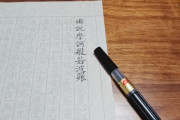 佛說摩訶般若波羅